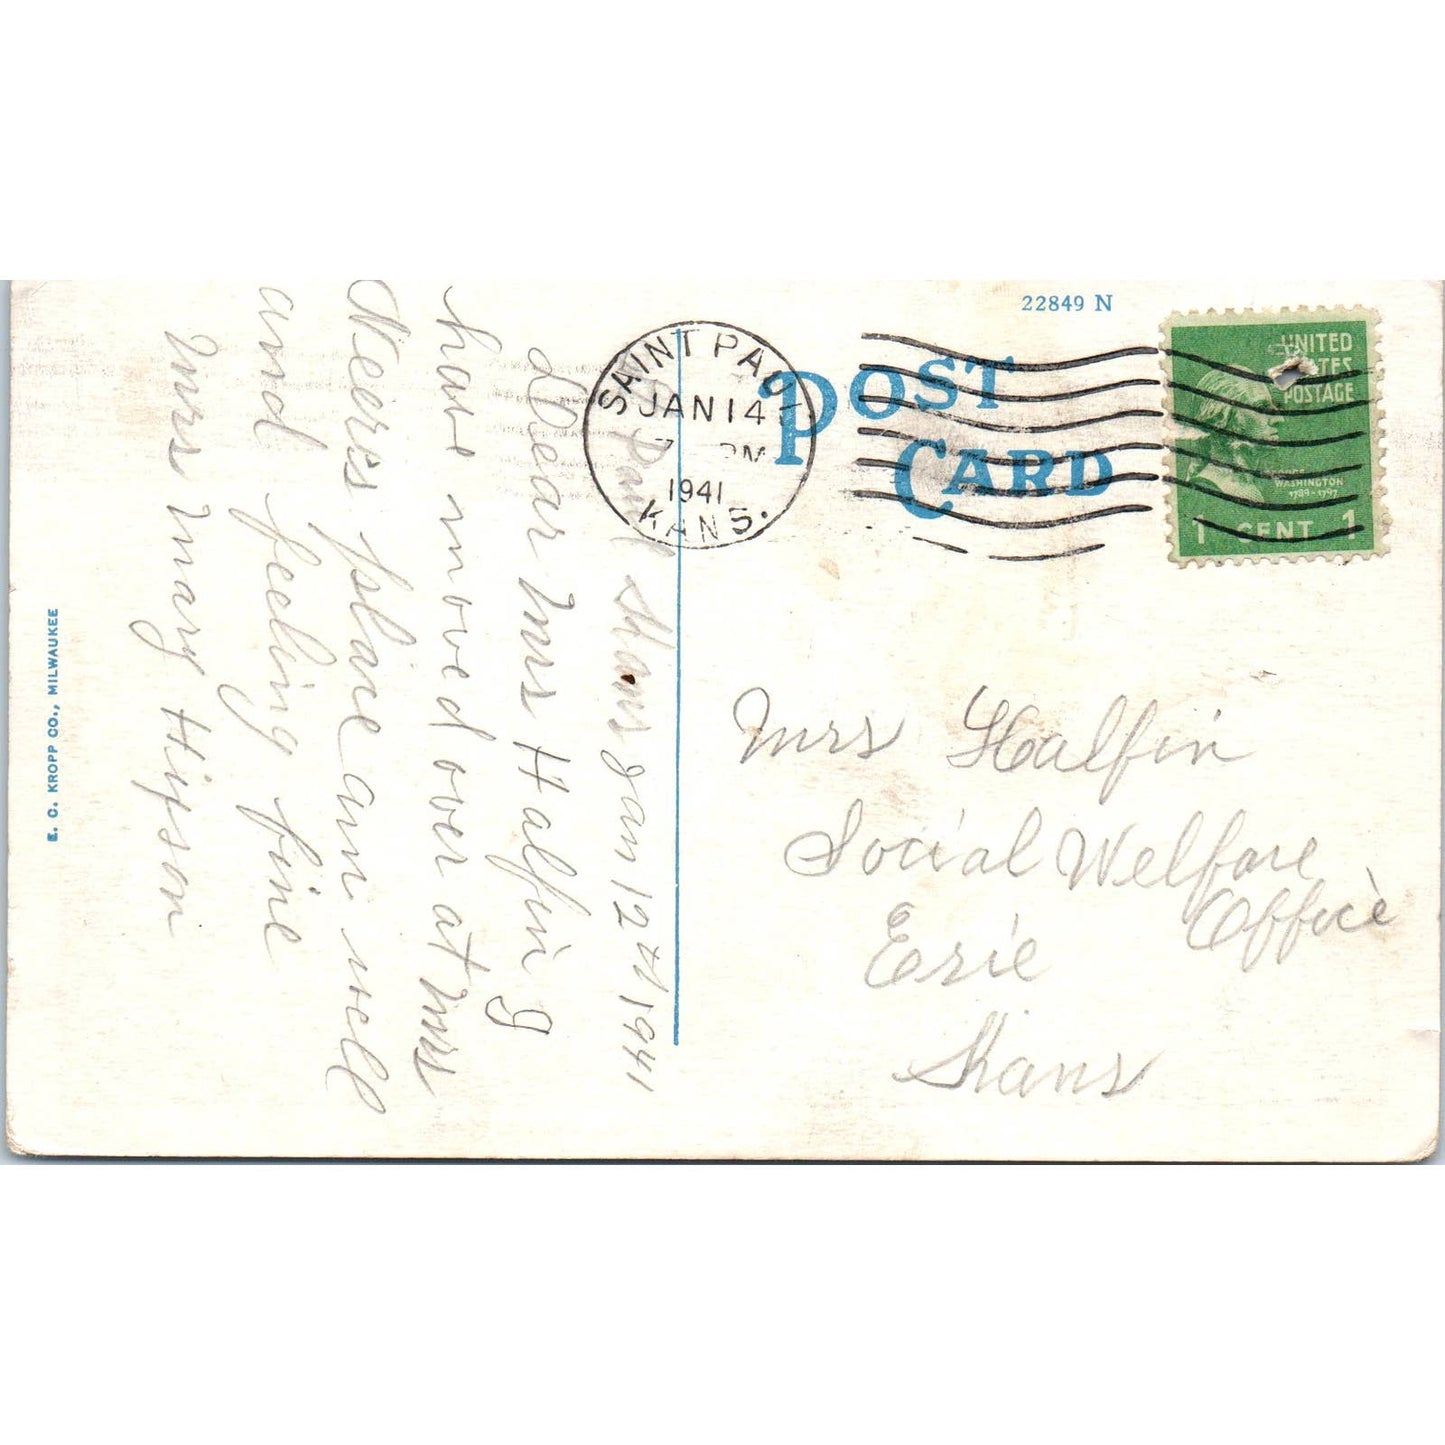 22849 N
POST
CARD
SAINT PAUL
JAN 14
PM
1941
KANS.
UNITED
STATES
POSTAGE
GEORGE
WASHINGTON
1789-1797
1 CENT 1
St Paul Kans Jan 12th 1941
Dear Mrs Halfin g
have moved over at Mrs
Neer's place am well
and feeling fine
Mrs Mary Hipson
Mrs Halfin
Social Welfare
Office
Erie
Kans
E. C. KROPP CO., MILWAUKEE